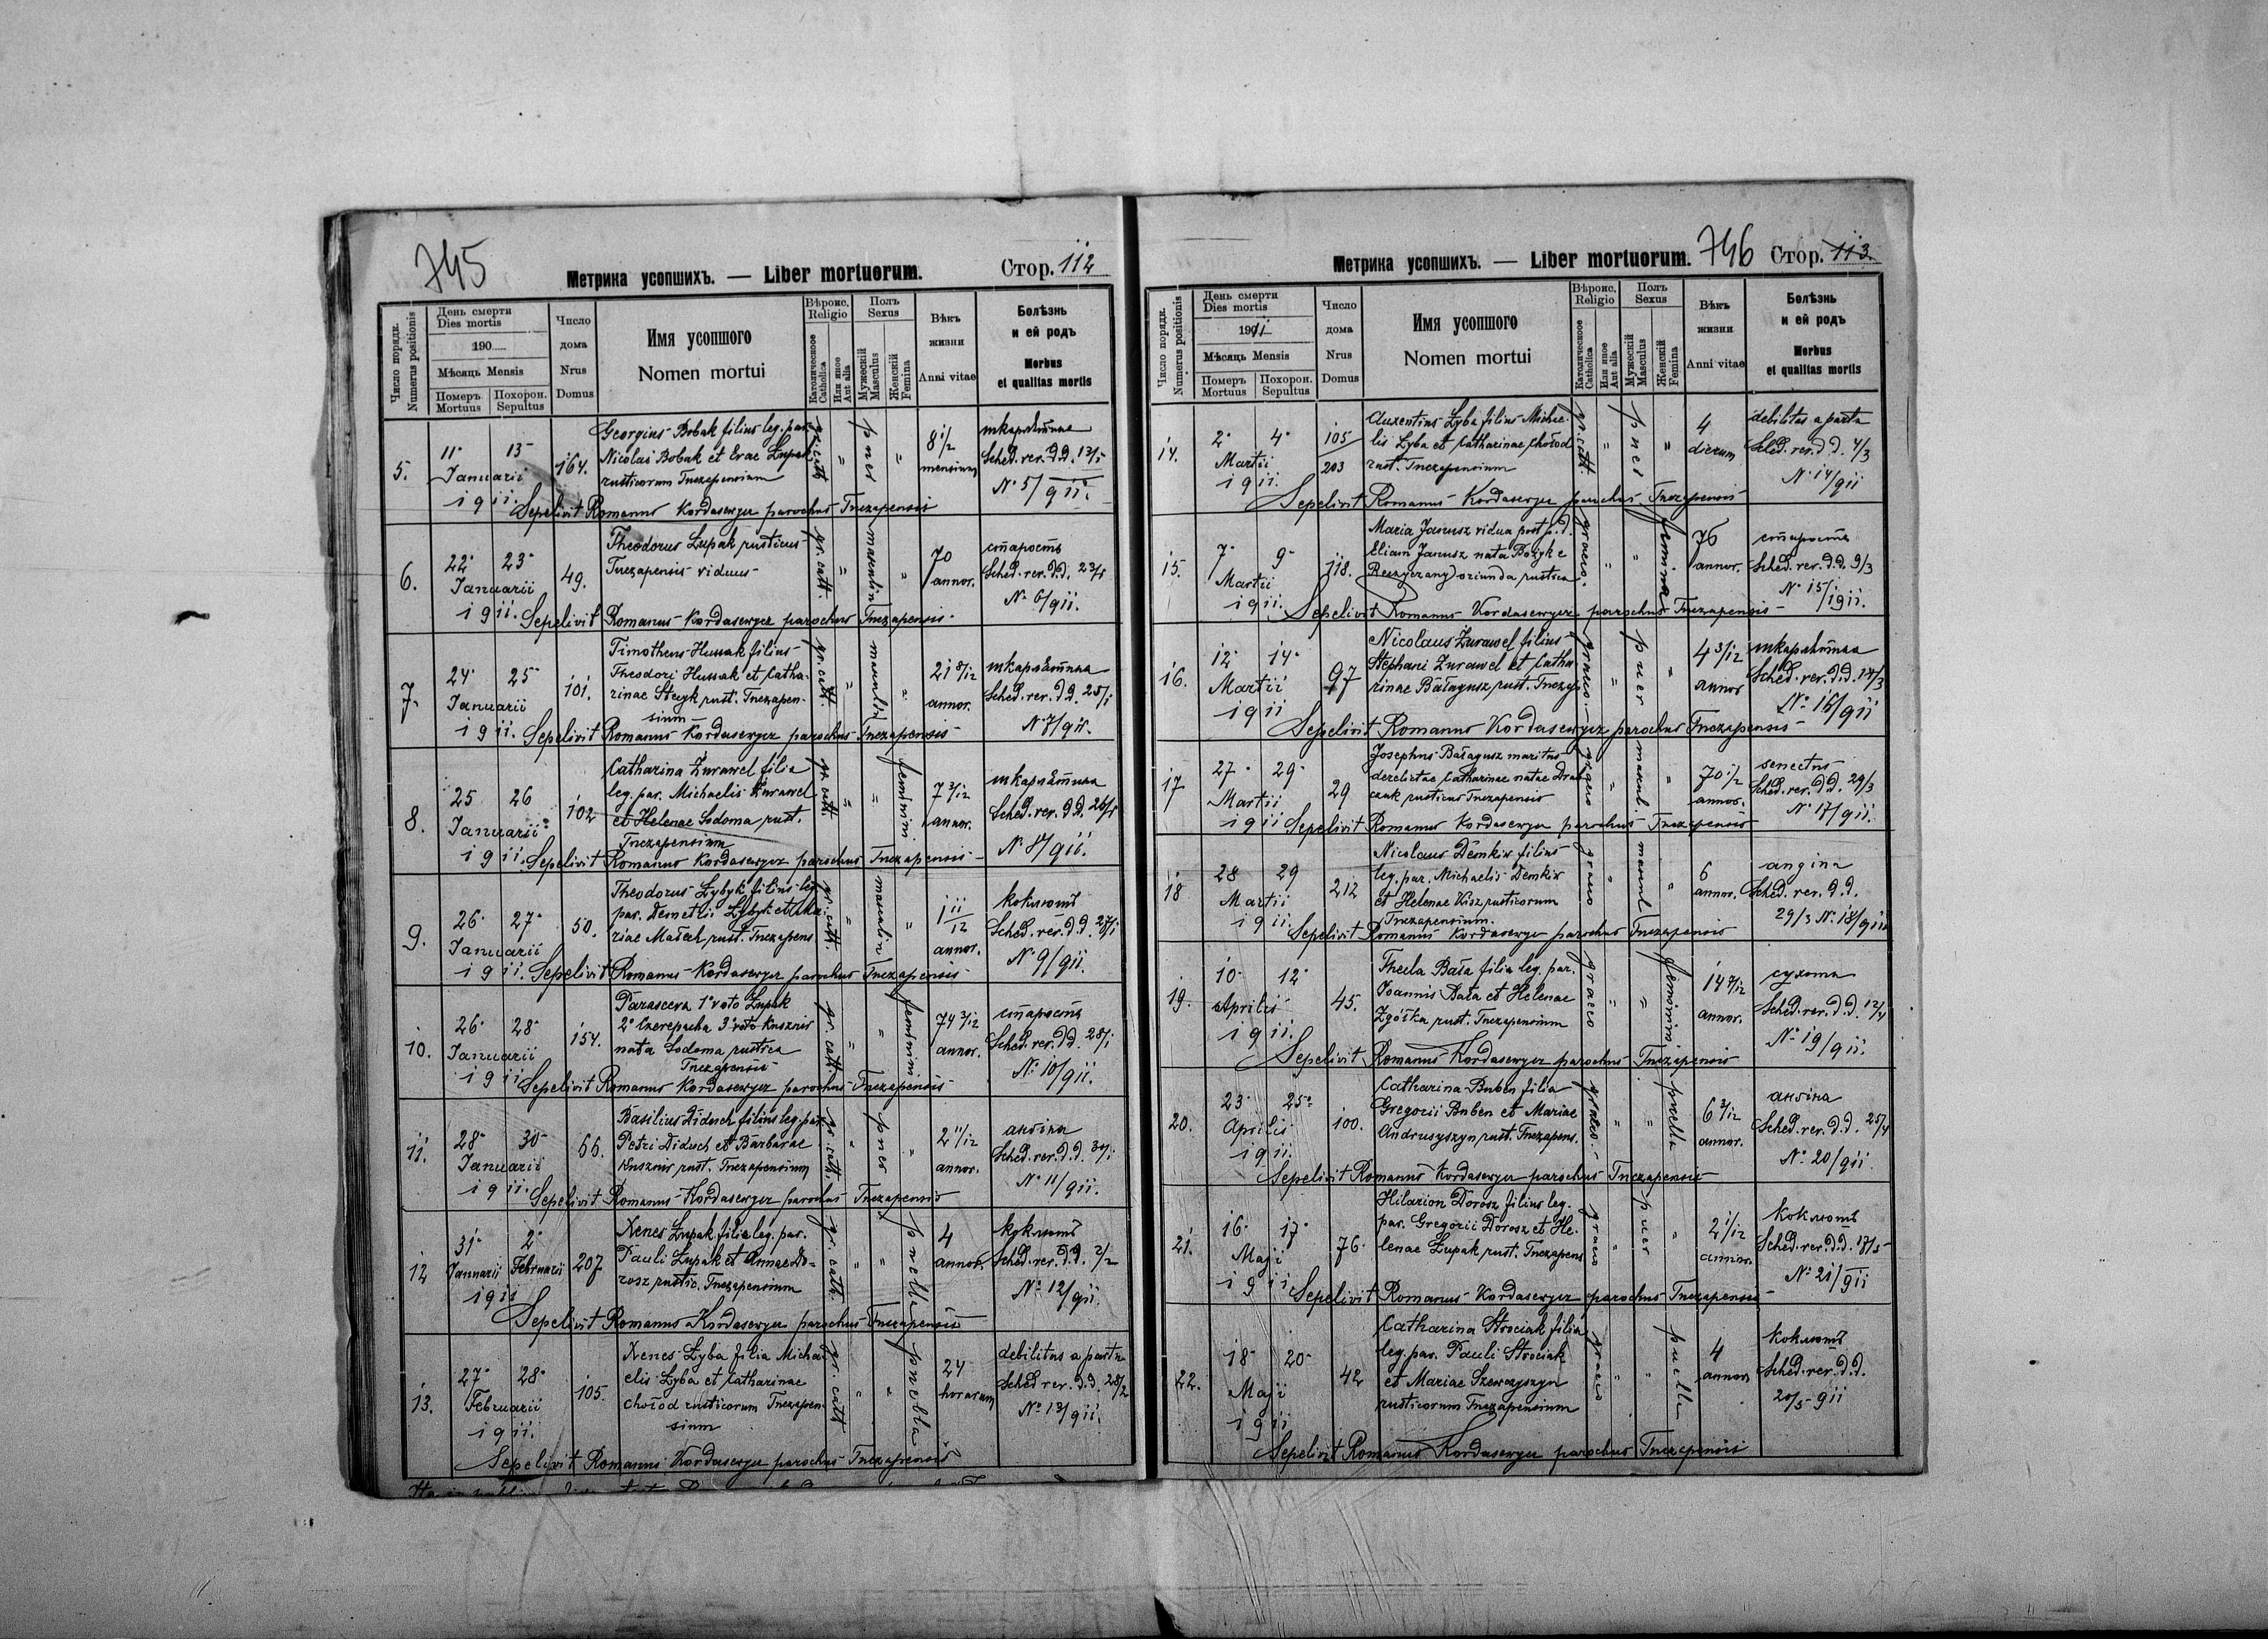 745
Метрика усопшихъ. — Liber mortuorum.
Стор. 112
Число порядк.
Numerus positionis
День смерти
Dies mortis
190
Мѣсяць Mensis
Померъ Mortuus
Похорон. Sepultus
Число дома
Nrus Domus
Имя усопшого
Nomen mortui
Вѣроис. Religio
Католическоое Catholica
Или иное Aut alia
Полъ Sexus
Мужескій Masculus
Женскій Femina
Вѣкъ жизни
Anni vitae
Болѣзнь и ей родъ
Morbus et qualitas mortis
5. 11 13 164. Georgius Bobak filius leg. par. gr. catt. puer 8 1/2 шкарлятина
Januarii Nicolai Bobak et Evae Łupak mensium Sched. rer. D.D. 13/1
1911. rusticorum Tnezapensium No 5/911.
Sepelivit Romanus Kordasewycz parochus Tnezapensis
6. 22 23 49. Theodorus Łupak rusticus gr. catt. masculin 70 старость
Januarii Tnezapensis viduus annor. Sched. rer. D.D. 23/1
1911. No 6/911.
Sepelivit Romanus Kordasewycz parochus Tnezapensis
7. 24 25 101. Timotheus Hussak filius gr. catt. masculin 21 8/12 шкарлятина
Januarii Theodori Hussak et Catha- annor. Sched. rer. D.D. 25/1
1911. rinae Stecyk rust. Tnezapen- No 7/911.
sium
Sepelivit Romanus Kordasewycz parochus Tnezapensis
8. 25 26 102 Catharina Żurawel filia gr. catt. feminin. 7 3/12 шкарлятина
Januarii leg. par. Michaelis Żurawel annor. Sched. rer. D.D. 26/1
1911. et Helenae Sodoma rust. No 8/911.
Tnezapensium
Sepelivit Romanus Kordasewycz parochus Tnezapensis
9. 26 27 50. Theodorus Łybyk filius leg. gr. catt. masculin 1 11/12 коклюшъ
Januarii par. Demetrii Łybyk et Ma- annor. Sched. rer. D.D. 27/1
1911. riae Małech rust. Tnezapens No 9/911.
Sepelivit Romanus Kordasewycz parochus Tnezapensis
10. 26 28 154. Parasceva 1o voto Łupak gr. catt. feminini 74 3/12 старость
Januarii 2o Czerepacha 3o voto Kusznir annor. Sched. rer. D.D. 28/1
1911 nata Sodoma rustica No 10/911.
Tnezapensis
Sepelivit Romanus Kordasewycz parochus Tnezapensis
11. 28 30 66. Basilius Diduch filius leg. par. gr. catt. puer 2 11/12 анґіна
Januarii Petri Diduch et Barbarae annor. Sched. rer. D.D. 30/1
1911. Kusznir rust. Tnezapensium No 11/911.
Sepelivit Romanus Kordasewycz parochus Tnezapensis
12 31 2 207 Xenes Łupak filia leg. par. gr. cath. puella 4 коклюшъ
Januarii Februarii Pauli Łupak et Annae Do- annor. Sched. rer. D.D. 2/2
1911 rosz rustic. Tnezapensium No 12/911.
Sepelivit Romanus Kordasewycz parochus Tnezapensis
13. 27 28 105. Xenes Łyba filia Micha- gr. catt puella 24 debilitas a partu
Februarii elis Łyba et Catharinae horarum Sched rer. D.D. 28/2
1911. Chołod rusticorum Tnezapen- No 13/911.
sium
Sepelivit Romanus Kordasewycz parochus Tnezapensis
746
Метрика усопшихъ. — Liber mortuorum.
Стор. 113
Число порядк.
Numerus positionis
День смерти
Dies mortis
1911
Мѣсяць Mensis
Померъ Mortuus
Похорон. Sepultus
Число дома
Nrus Domus
Имя усопшого
Nomen mortui
Вѣроис. Religio
Католическоое Catholica
Или иное Aut alia
Полъ Sexus
Мужескій Masculus
Женскій Femina
Вѣкъ жизни
Anni vitae
Болѣзнь и ей родъ
Morbus et qualitas mortis
14. 2 4 105/203 Auxentius Łyba filius Michae- gr. catt. puer 4 debilitas a partu
Martii lis Łyba et Catharinae Chołod dierum Sched. rer. D.D. 4/3
1911. rust. Tnezapensium No 14/911
Sepelivit Romanus Kordasewycz parochus Tnezapensis
15. 7 9 118. Maria Janusz vidua post p.d. graeco. feminina 76 старость
Martii Eliam Janusz nata Bożyk e annor. Sched. rer. D.D. 9/3
1911. oriunda rustica No 15/1911.
Sepelivit Romanus Kordasewycz parochus Tnezapensis
16. 12 14 97 Nicolaus Żurawel filius graeco. puer 4 3/12 шкарлятина
Martii Stephani Żurawel et Catha- annor Sched. rer. D.D. 14/3
1911 rinae Bałagusz rust. Tnezap No 16/911
Sepelivit Romanus Kordasewycz parochus Tnezapensis
17 27 29 29 Josephus Bałagusz maritus graeco mascul. 70 1/2 senectus
Martii derelictae Catharinae natae Drab annor. Sched. rer. D.D. 29/3
1911 czuk rusticus Tnezapensis No 17/911.
Sepelivit Romanus Kordasewycz parochus Tnezapensis
18 28 29 212 Nicolaus Demkiw filius graeco mascul 6 angina
Martii leg. par. Michaelis Demkiw annor. Sched. rer. D.D.
1911. et Helenae Kisz rusticorum 29/3 No 18/911
Tnezapensium.
Sepelivit Romanus Kordasewycz parochus Tnezapensis
19. 10 12 45. Thecla Bała filia leg. par. graeco feminina 14 7/12 сухота
Aprilis Joannis Bała et Helenae annor. Sched. rer. D.D. 12/4
1911. Zgółka rust. Tnezapensium No 19/911.
Sepelivit Romanus Kordasewycz parochus Tnezapensis
20. 23 25 100. Catharina Buben filia graeco. puella 6 3/12 анґіна
Aprilis Gregorii Buben et Mariae annor. Sched. rer. D.D. 25/4
1911. Andrusyszyn rust. Tnezapens. No 20/911
Sepelivit Romanus Kordasewycz parochus Tnezapensis
21. 16 17 76 Hilarion Dorosz filius leg. graeco puer 2 1/12 коклюшъ
Maji par. Gregorii Dorosz et He- annor. Sched. rer. D.D. 17/5
1911 lenae Łupak rust. Tnezapens No 21/911
Sepelivit Romanus Kordasewycz parochus Tnezapensis
22. 18 20 42 Catharina Strociak filia graeco puella 4 коклюшъ
Maji leg. par. Pauli Strociak annor Sched. rer. D.D.
1911 et Mariae Szewczyszyn 20/5 911
rusticorum Tnezapensium
Sepelivit Romanus Kordasewycz parochus Tnezapensis